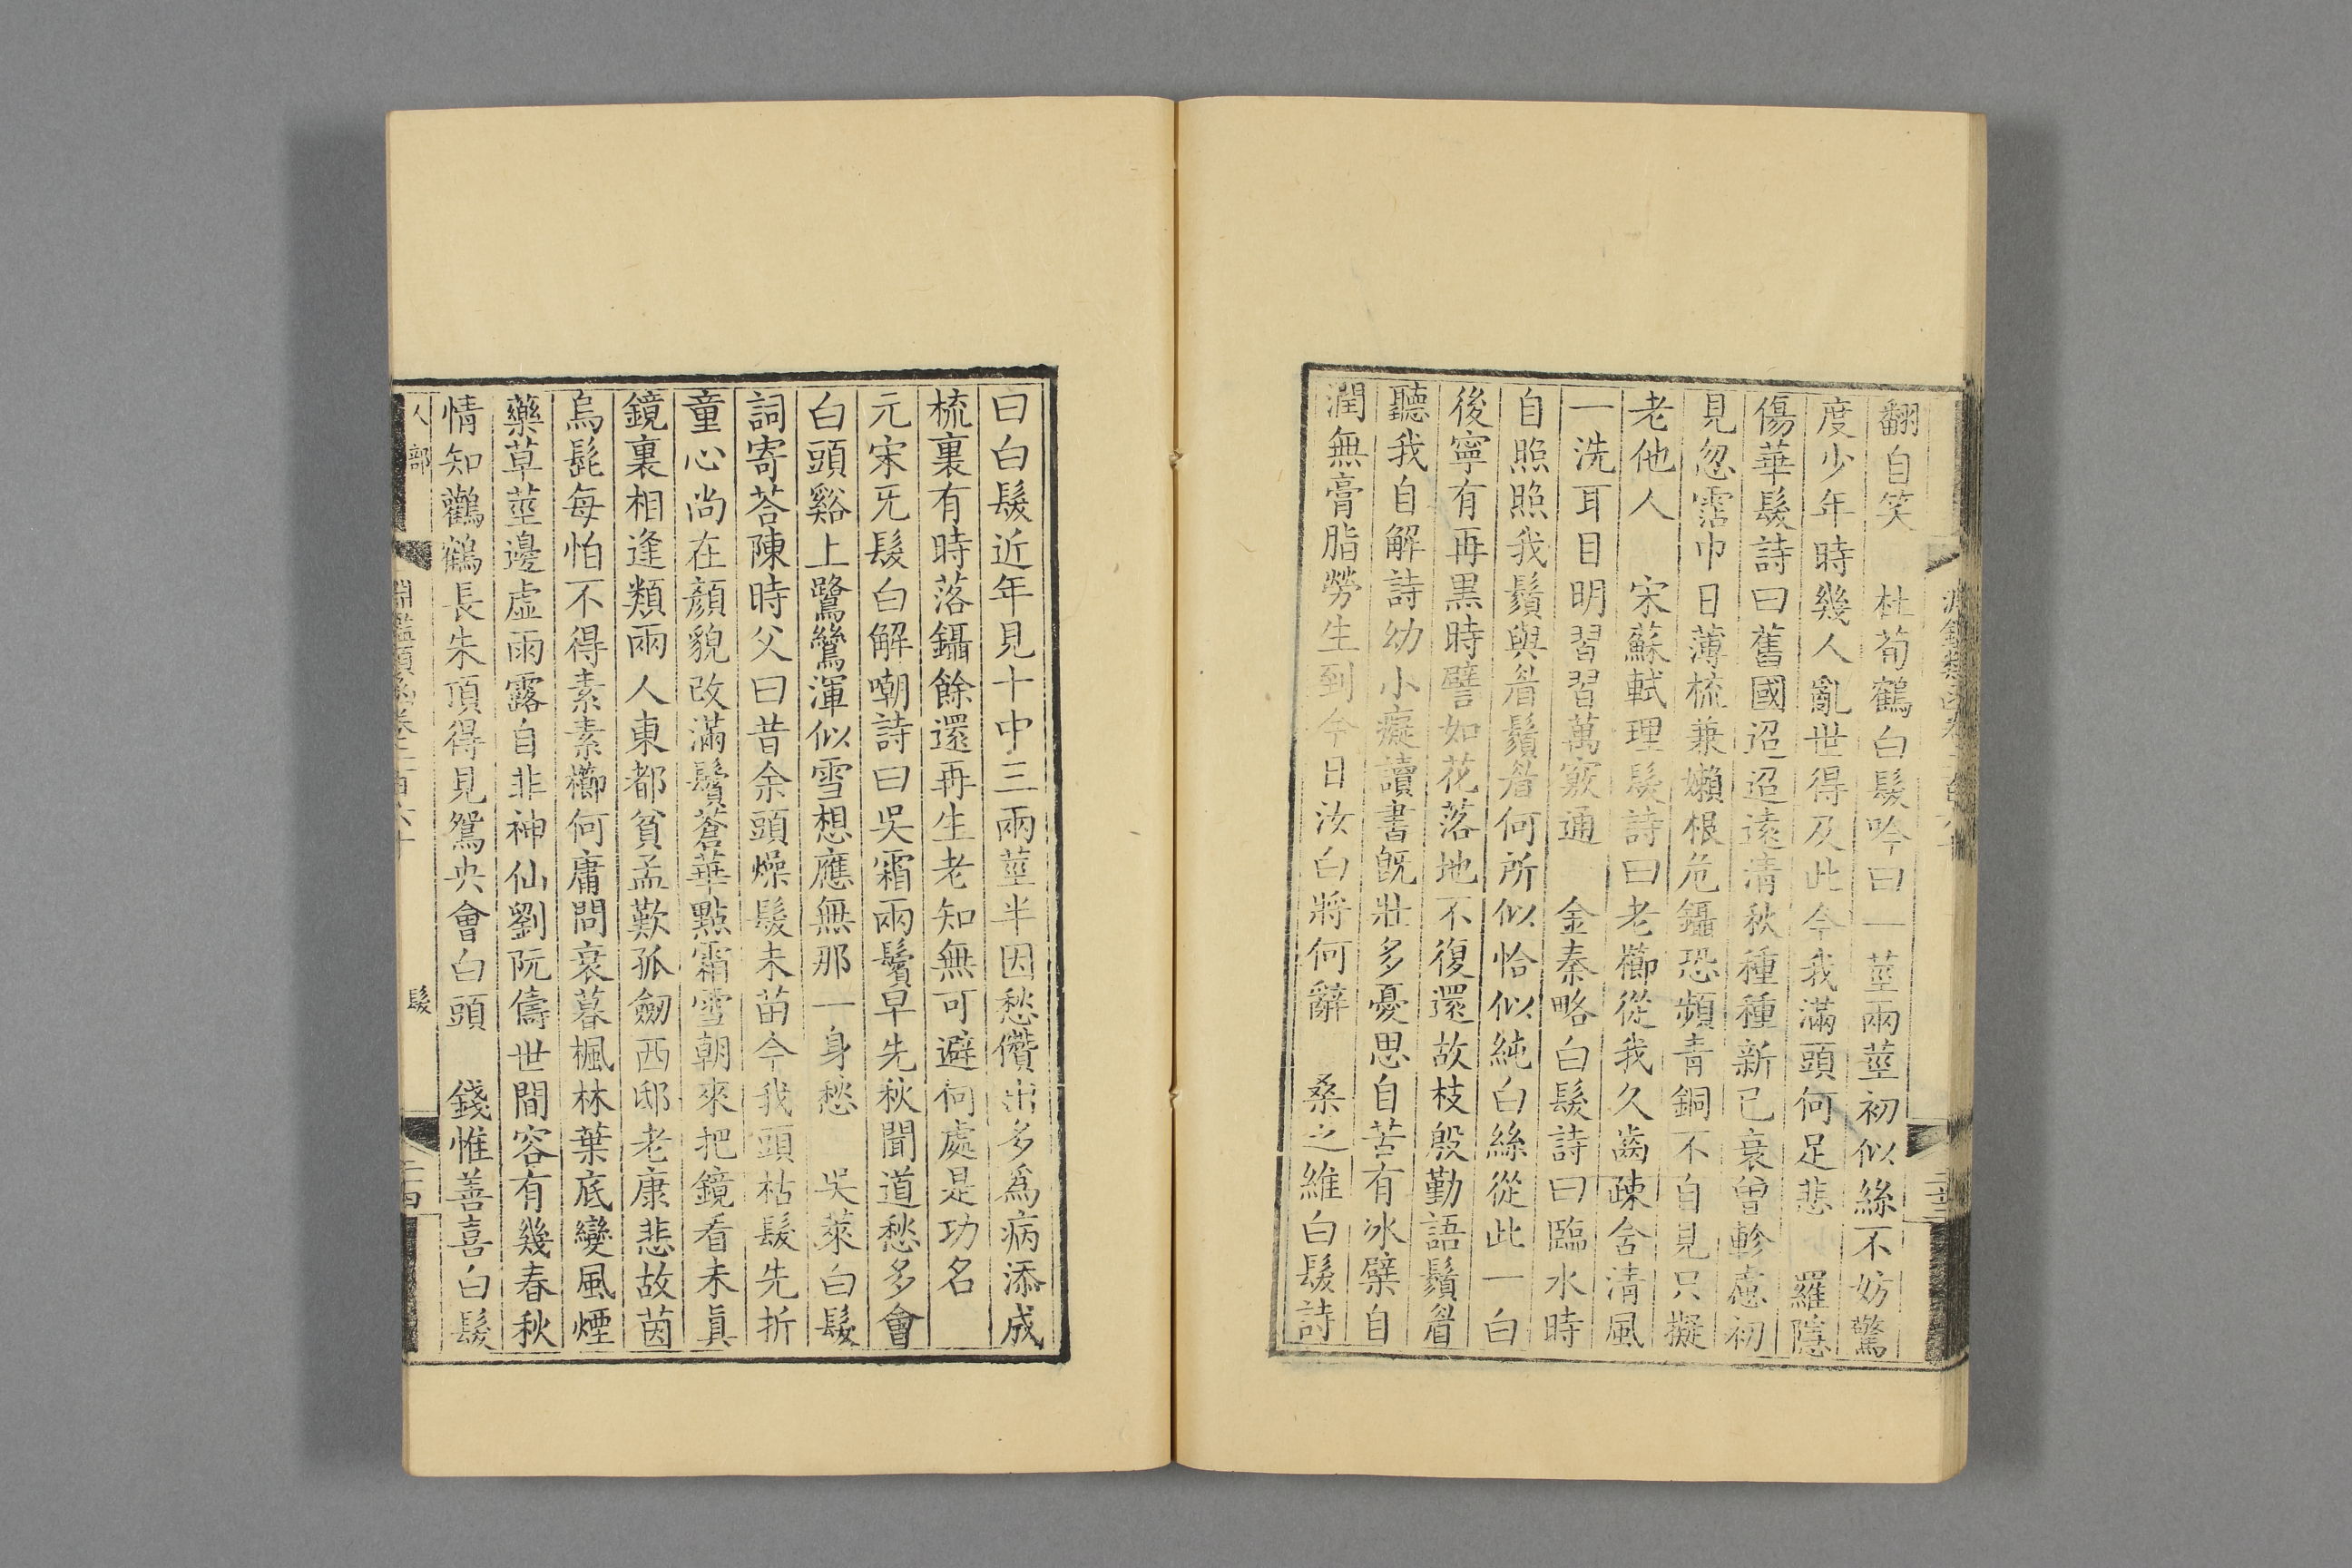 翻自笑　杜荀鶴白髮吟曰一莖兩莖初似絲不妨驚
度少年時幾人亂世得及此今我滿頭何足悲　羅隱
傷華髮詩曰舊國迢迢遠清秋種種新已衰曾軫慮初
見忽霑巾日薄梳兼嬾根危鑷恐頻青銅不自見只擬
老他人　宋蘇軾理髮詩曰老櫛從我久齒疎含清風
一洗耳目明習習萬竅通　金秦略白髮詩曰臨水時
自照照我鬚與眉鬚眉何所似恰似純白絲從此一白
後寧有再黒時譬如花落地不復還故枝殷勤語鬚眉
聽我自解詩幼小癡讀書旣壯多憂思自苦有冰檗自
潤無膏脂勞生到今日汝白將何辭　桑之維白髮詩
曰白髮近年見十中三兩莖半因愁儹出多爲病添成
梳裏有時落鑷餘還再生老知無可避何處是功名
元宋旡髮白解嘲詩曰吳霜兩鬢早先秋聞道愁多會
白頭谿上鷺鷥渾似雪想應無那一身愁　吳萊白髮
詞寄荅陳時父曰昔余頭燥髮未苗今我頭枯髮先折
童心尚在顏貌改滿鬢蒼華點霜雪朝來把鏡看未眞
鏡裏相逢類兩人東都貧孟歎孤劒西邸老康悲故茵
烏髭每怕不得素素櫛何庸問衰暮楓林葉底變風煙
藥草莖邊虛雨露自非神仙劉阮儔世間容有幾春秋
情知鸛鶴長朱頂得見鴛央會白頭　錢惟善喜白髮
人部　淵鑑類函卷二百六十　髮　二十四